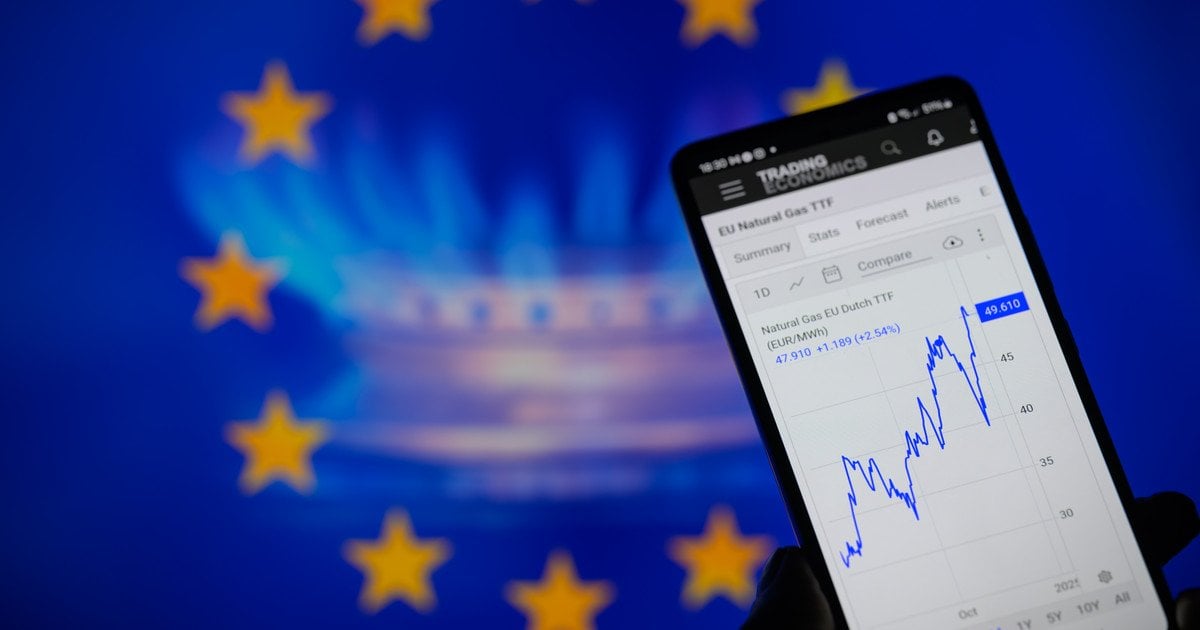 18:30
TRADING
ECONOMICS
EU Natural Gas TTF
Summary Stats Forecast Alerts E
1D Compare
Natural Gas EU Dutch TTF
(EUR/MWh)
47.910 +1.189 (+2.54%)
49.610
45
40
35
30
Oct 2025
1Y 5Y 10Y All